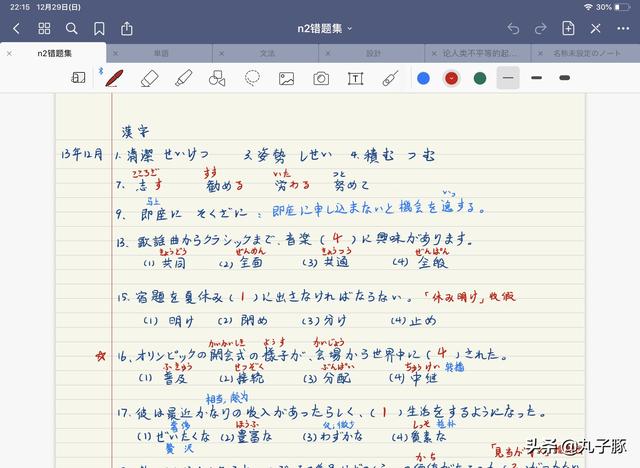 22:15 12月29日(日) 30%
n2错题集
n2错题集 単語 文法 設計 论人类不平等的起... 名称未設定のノート
漢字
13年12月 1. 清潔 せいけつ 3. 姿勢 しせい 4. 積む つむ
こころざ すす いた つと
7. 志す 勧める 労わる 努めて
马上 いつ
9. 即座に そくざに : 即座に申し込まないと機会を逸する。
13. 歌謡曲からクラシックまで、音楽 ( 4 ) に興味があります。
きょうどう ぜんめん きょうつう ぜんぱん
(1) 共同 (2) 全面 (3) 共通 (4) 全般
15. 宿題を夏休み ( 1 ) に出さなければならない。 「休み明け」收假
(1) 明け (2) 閉め (3) 分け (4) 止め
かいかいしき ようす かいじょう
☆ 16. オリンピックの開会式の様子が、会場から世界中に ( 4 ) された。
ふきゅう せつぞく ぶんぱい ちゅうけい 转播
(1) 普及 (2) 接続 (3) 分配 (4) 中継
相当,颇为
17. 彼は最近かなりの収入があったらしく、( 1 ) 生活をするようになった。
奢侈 ほうふ 仅,微少 しっそ 朴朴
(1) ぜいたくな (2) 豊富な (3) わずかな (4) 質素な
贅沢
头条 @丸子豚